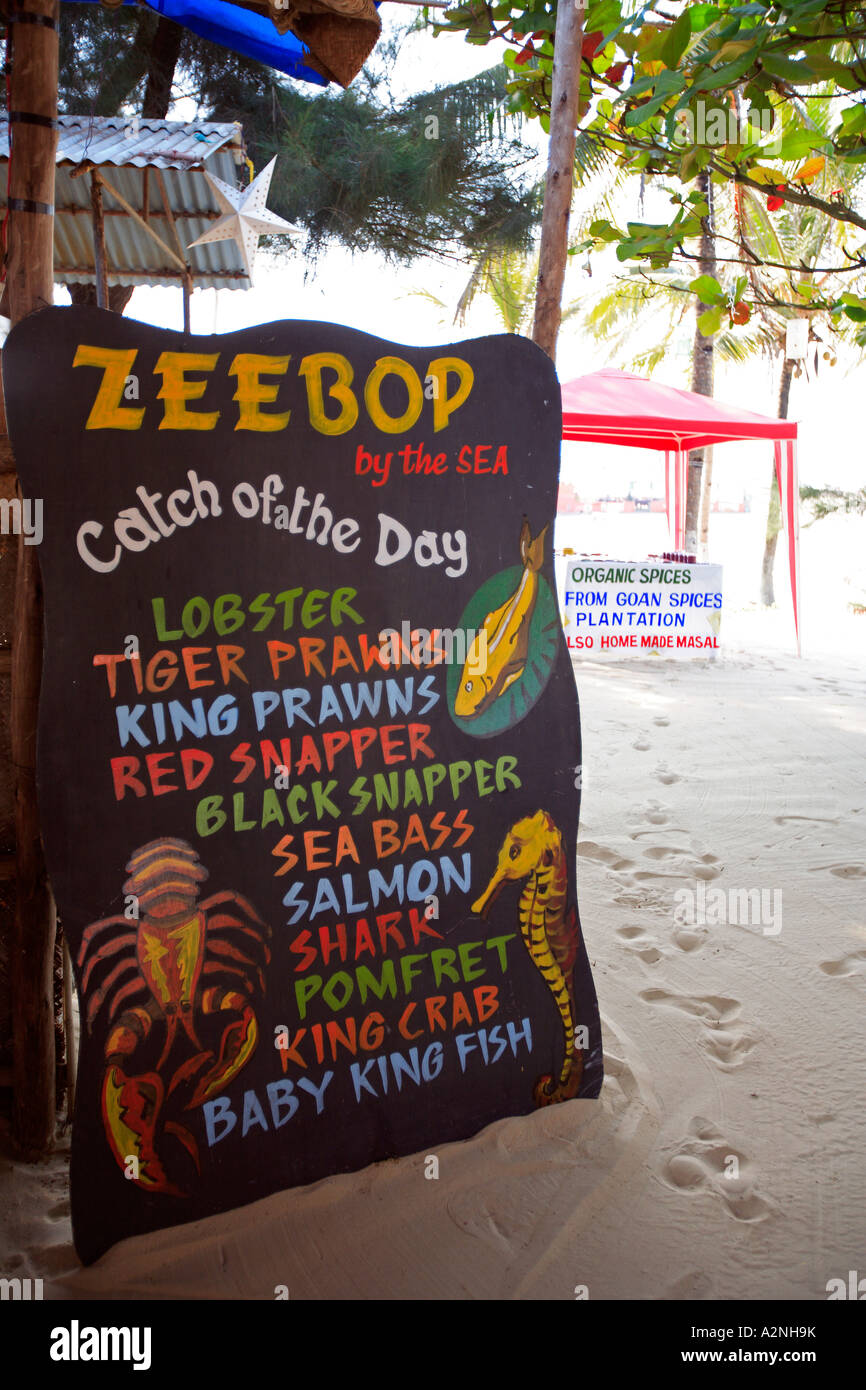 ZEEBOP
by the SEA
Catch of the Day
LOBSTER
TIGER PRAWNS
KING PRAWNS
RED SNAPPER
BLACK SNAPPER
SEA BASS
SALMON
SHARK
POMFRET
KING CRAB
BABY KING FISH
ORGANIC SPICES
FROM GOAN SPICES
PLANTATION
LSO HOME MADE MASAL
alamy
alamy
Image ID: A2NH9K
www.alamy.com